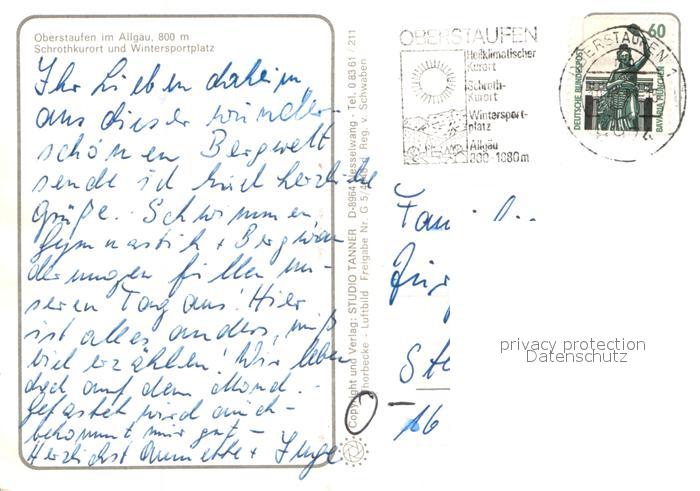 Oberstaufen im Allgäu, 800 m
Schrothkurort und Wintersportplatz
Ihr Lieben daheim
aus dieser wunder-
schönen Bergwelt
sende ich Euch herzliche
Grüße. Schwimmen
Gymnastik + Bergwan
derungen füllen un-
seren Tag aus! Hier
ist alles anders, muß
viel erzählen! Wir leben
doch auf dem Mond.
Gefastet wird auch -
bekommt mir gut -
Herzlichst Annette + Inge
Copyright und Verlag: STUDIO TANNER D-8964 Nesselwang · Tel. 0 83 61 / 211
Thorbecke - Luftbild Freigabe Nr. G 5/ Reg. v. Schwaben
OBERSTAUFEN
Heilklimatischer
Kurort
Schroth-
Kurort
Wintersport-
platz
Allgäu
800-1680m
OBERSTAUFEN 1
60
DEUTSCHE BUNDESPOST
BAVARIA MÜNCHEN
Fam
Jür
St
16
privacy protection
Datenschutz